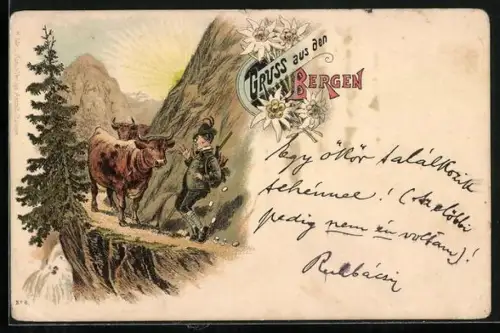 GRUSS aus den
BERGEN
Egy ökör találkozik
tehénnel! (Az előbbi
pedig nem én voltam)!